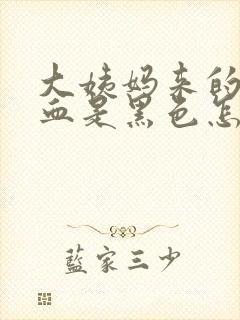 大姨妈来的
血是黑色怎
藍家三少